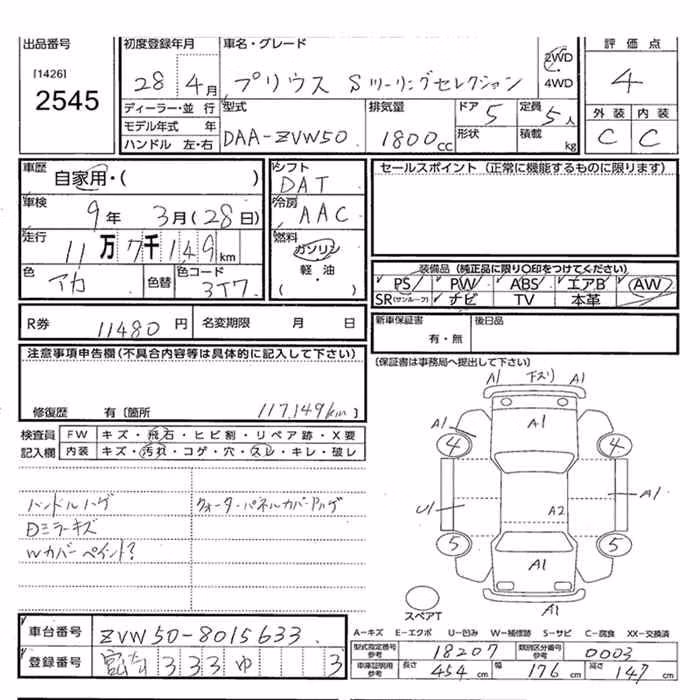 出品番号
[1426]
2545
初度登録年月
28年 4月
車名・グレード
プリウス Sツーリングセレクション
2WD
・
4WD
評価点
4
ディーラー・並行
モデル年式 年
ハンドル 左・右
型式
DAA-ZVW50
排気量
1800cc
ドア 5
形状
定員 5人
積載 kg
外装 内装
C C
車歴
自家用・( )
車検
9年 3月(28日)
走行
11万7千149km
色
アカ
色替
色コード
3T7
シフト
DAT
冷房
AAC
燃料
ガソリン
・
軽・油
( )
セールスポイント(正常に機能するものに限ります)
装備品(純正品に限り○印をつけてください)
PS PW ABS エアB AW
SR(サンルーフ) ナビ TV 本革
R券 11480円 名変期限 月 日
新車保証書
有・無
後日品
(保証書は事務局へ提出して下さい)
注意事項申告欄(不具合内容等は具体的に記入して下さい)
修復歴 有〔箇所
117,149km)
検査員
記入欄
FW キズ・飛石・ヒビ割・リペア跡・X要
内装 キズ・汚れ・コゲ・穴・スレ・キレ・破レ
ハンドルハゲ
クォーターパネルカバーハゲ
Dミラーキズ
Wカバーペイント?
A1 下スリ A1
A1 A1
4 4
A1
U1 A2
5 5
A1
A1
スペアT
車台番号 ZVW50-8015633
登録番号 333 ゆ 3
A-キズ E-エクボ U-凹み W-補修跡 S-サビ C-腐食 XX-交換済
型式指定番号
参考
18207
類別区分番号
参考
0003
車庫証明用
参考
長さ 454cm 幅 176cm 高さ 147cm